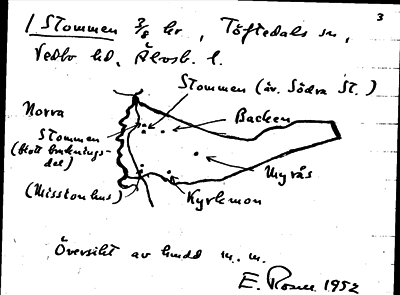 3
1 Stommen 3/8 hr, Töftedals sn,
Vedbo hd, Älvsb. l.
Stommen (äv. Södra St.)
Norra
Stommen
(blott bruknings-
del)
Backen
Myrås
(Missionshus)
Kyrkmon
Översikt av hmdd m. m.
E. Rosell 1952